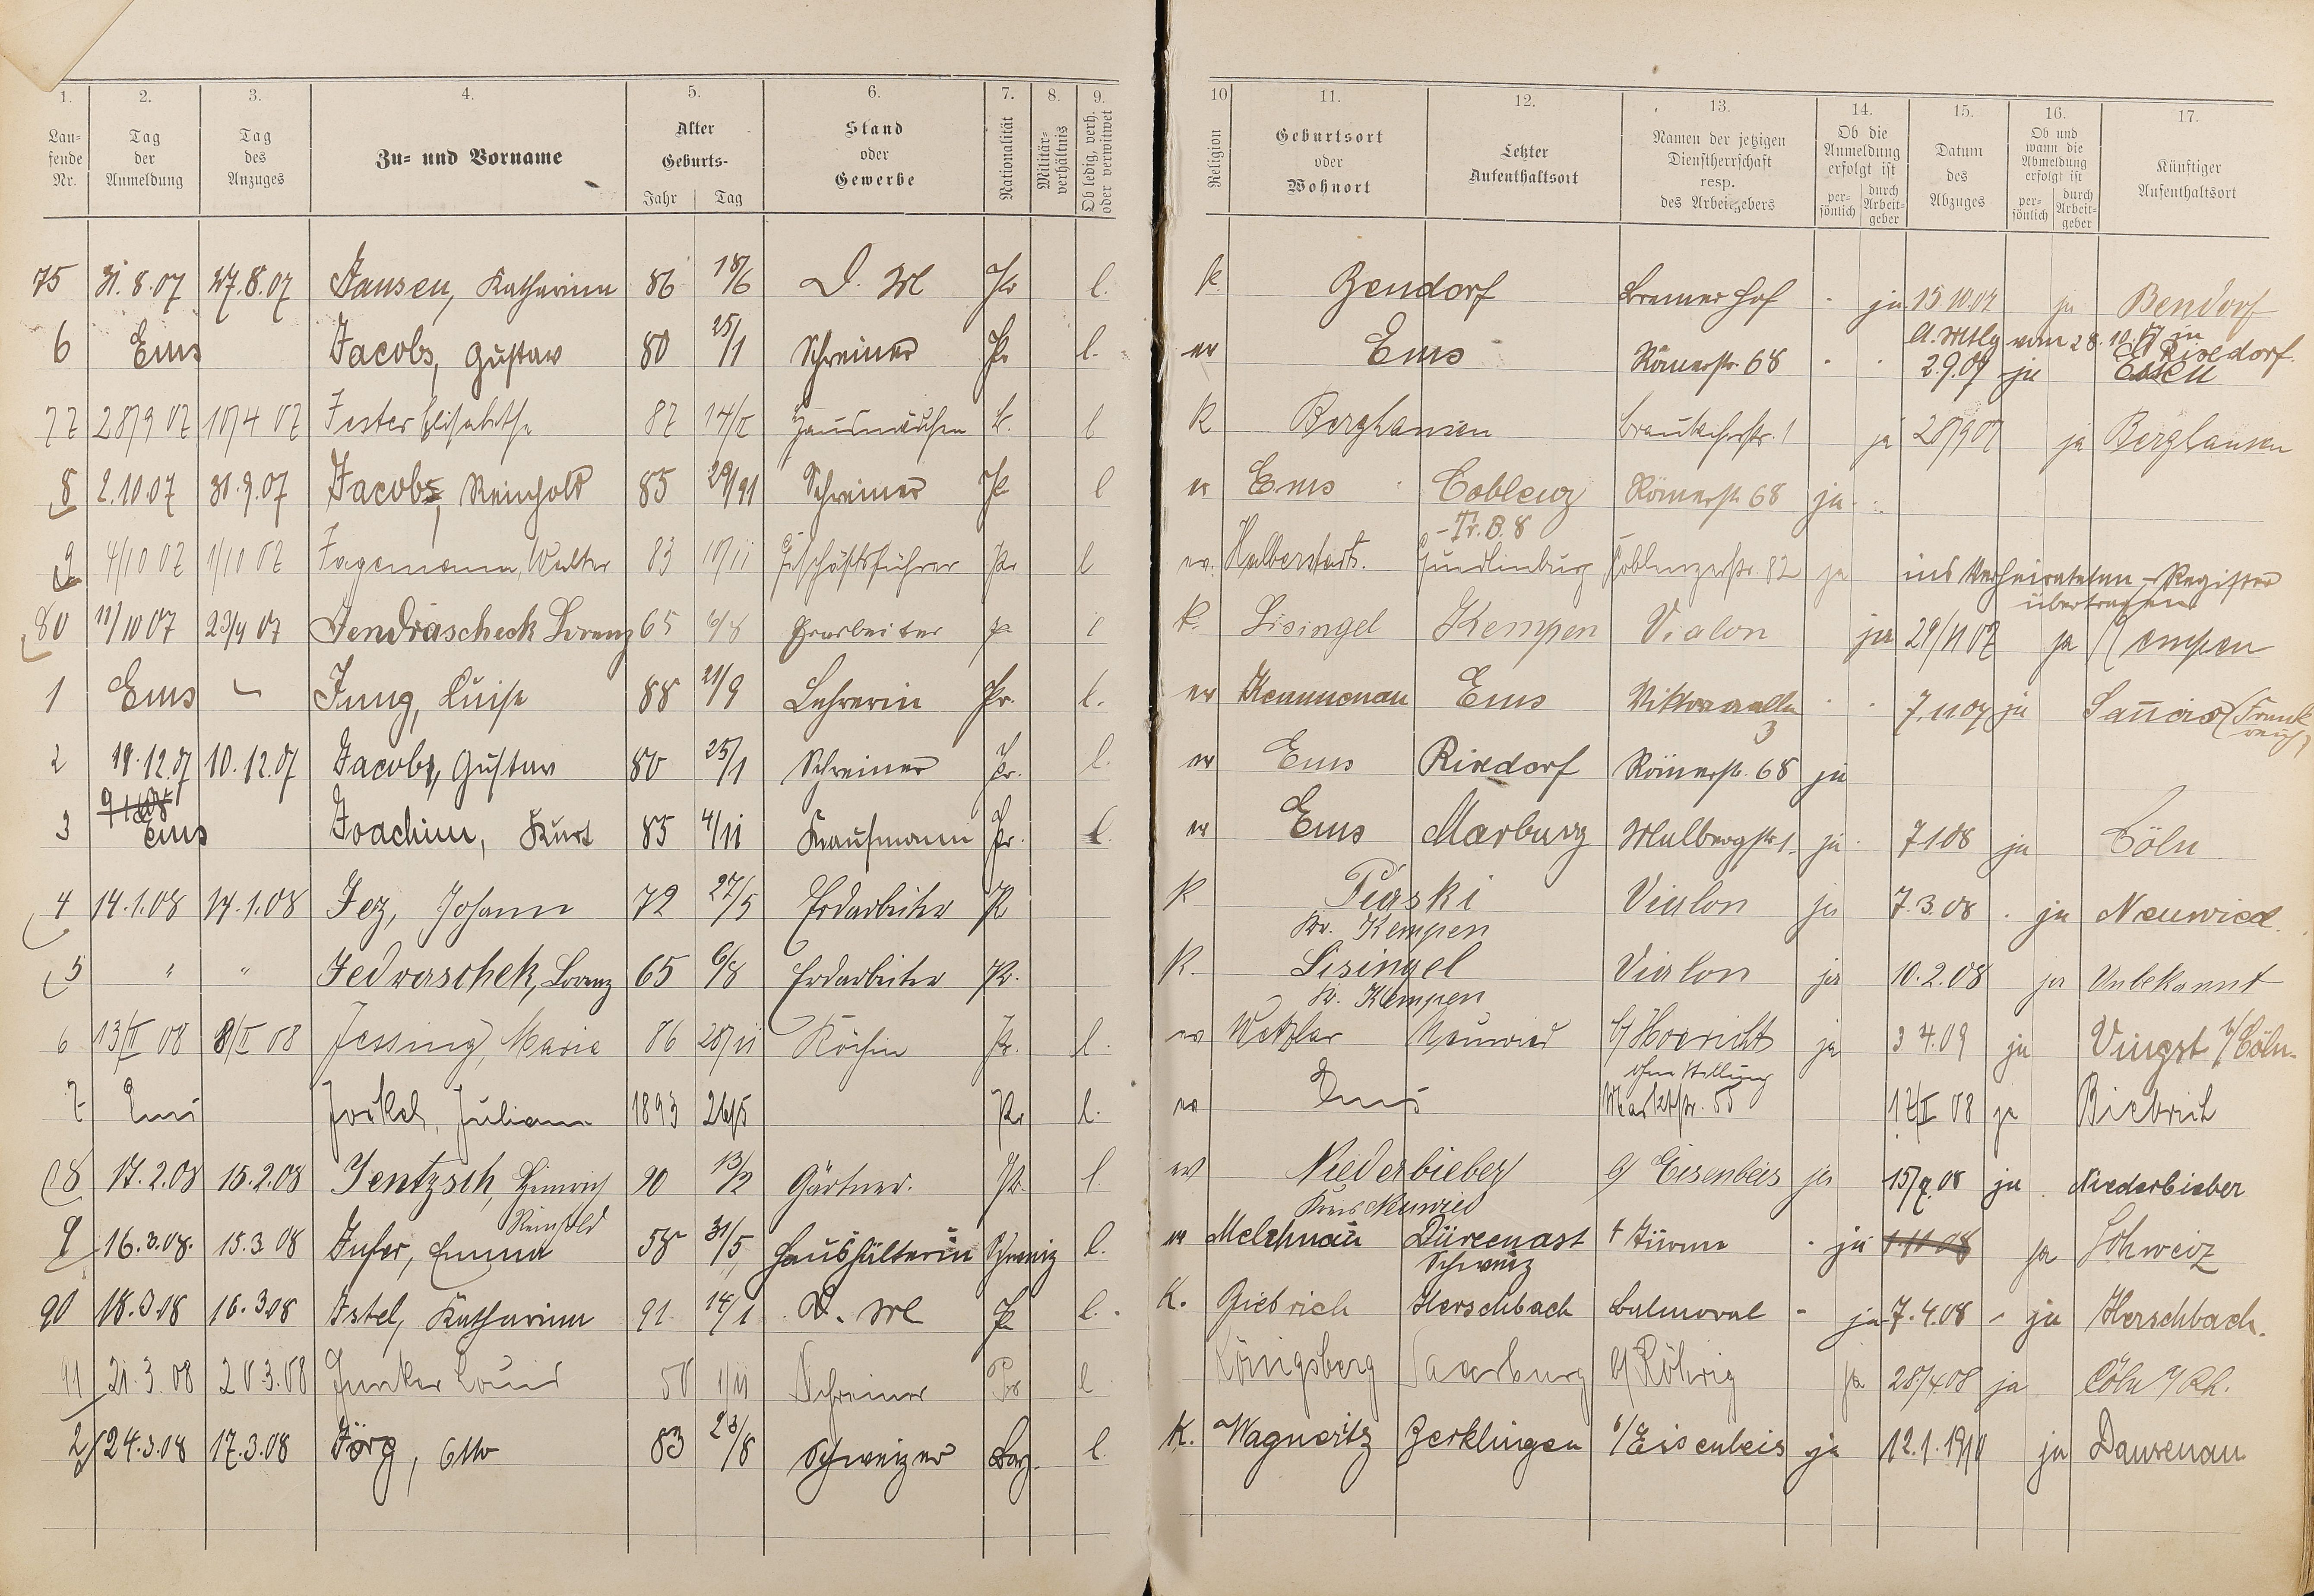 1. 2. 3. 4. 5. 6. 7. 8. 9. 10 11. 12. 13. 14. 15. 16. 17.
Laufende Nr. | Tag der Anmeldung | Tag des Anzuges | Zu- und Vorname | Alter Geburts- Jahr Tag | Stand oder Gewerbe | Nationalität | Militärverhältnis | Ob ledig, verh. oder verwitwet | Religion | Geburtsort oder Wohnort | Letzter Aufenthaltsort | Namen der jetzigen Dienstherrschaft resp. des Arbeitgebers | Ob die Anmeldung erfolgt ist persönlich durch Arbeitgeber | Datum des Abzuges | Ob und wann die Abmeldung erfolgt ist persönlich durch Arbeitgeber | Künftiger Aufenthaltsort
75 31.8.07 27.8.07 Jansen, Katharina 86 18/6 D. M Pr l. k Bendorf Bremerhof - ja 15 10.07 ja Bendorf
A. Mtlg vom 28.10.07 in Rixdorf.
6 Ems Jacobs, Gustav 80 25/1 Schreiner Pr l. ev Ems Römerstr. 68 2.9.07 ja Essen
77 28/9 07 10/4 07 Jester Elisabethe 87 14/X Hausmädchen Pr. l K Berghausen Braubacherstr. 1 ja 28/9 07 ja Berghausen
8 2.10.07 30.9.07 Jacobs, Reinhold 85 Schreiner Pr l ev Ems Coblenz Römerstr 68 ja
- Tr. B. 8
9 4/10 07 1/10 07 Jagemann, Walter 83 10/11 Geschäftsführer Pr l ev. Halberstadt. Quedlinburg Coblenzerstr. 82 ja ins Verheirateten-Register
übertragen
80 11/10 07 23/9 07 Jendrascheck Lorenz 65 6/8 Erdarbeiter Pr l k. Lisingel Kempen Vialon ja 29/11 07 ja Kempen
1 Ems - Jung, Luise 88 21/9 Lehrerin Pr. l. ev Kemmenau Ems Viktoriaallee 3 7.11.07 ja Sannois (Frankreich)
2 19.12.07 10.12.07 Jacobs, Gustav 80 25/1 Schreiner Pr. l. ev Ems Rixdorf Römerstr. 68 ja
3 Ems Joachim, Kurt 85 4/11 Kaufmann Pr. l. ev Ems Marburg Malbergstr 1. ja 7 1 08 ja Cöln
4 14.1.08 14.1.08 Jez, Johann 72 27/5 Erdarbeiter Pr K Piaski Vialon ja 7.3.08 . ja Neuwied.
Kr. Kempen
5 " " Jedraschek, Lorenz 65 6/8 Erdarbeiter Pr. K. Lisingel Vialon ja 10.2.08 ja Unbekannt
Kr. Kempen
6 13/II 08 8/II 08 Jessing, Maria 86 28/11 Köchin Pr. l. ev Wetzlar Neuwied b/ Hoericht ja 3 4.09 ja Vingst b/Cöln.
ohne Stellung
7 Ems Jockel, Juliane 1893 26/5 Pr l. ev Ems Marktstr. 55 ja Biebrich
88 17.2.08 15.2.08 Jentzsch, Heinrich 90 13/2 Gärtner. Pr. l. ev Niederbieber b/ Eisenbeis ja 15/9.08 ja Niederbieber
Reinhold Kreis Neuwied
9 16.3.08. 15.3 08 Jufer, Emma 58 31/5 Haushälterin Schweiz l. ev Melchnau Dürrenast ja 1.11 08 ja Schweiz
Schweiz
90 18.3.08 16.3.08 Istel, Katharina 91 14/1 D. M Pr l. K. Giebrich Herschbach Balmoral - ja 7.4.08 - ja Herschbach.
91 21.3 08 20.3.08 Junker Louis 50 1/11 Schreiner Pr l Königsberg Saarburg b/ Röhrig ja 28/4 08 ja Cöln a/Rh.
2 24.3.08 17.3.08 Jörg, Otto 83 23/8 Schweizer Bay. l. K. Wagneritz b/Eisenbeis ja 12.1.1910 ja Dausenau